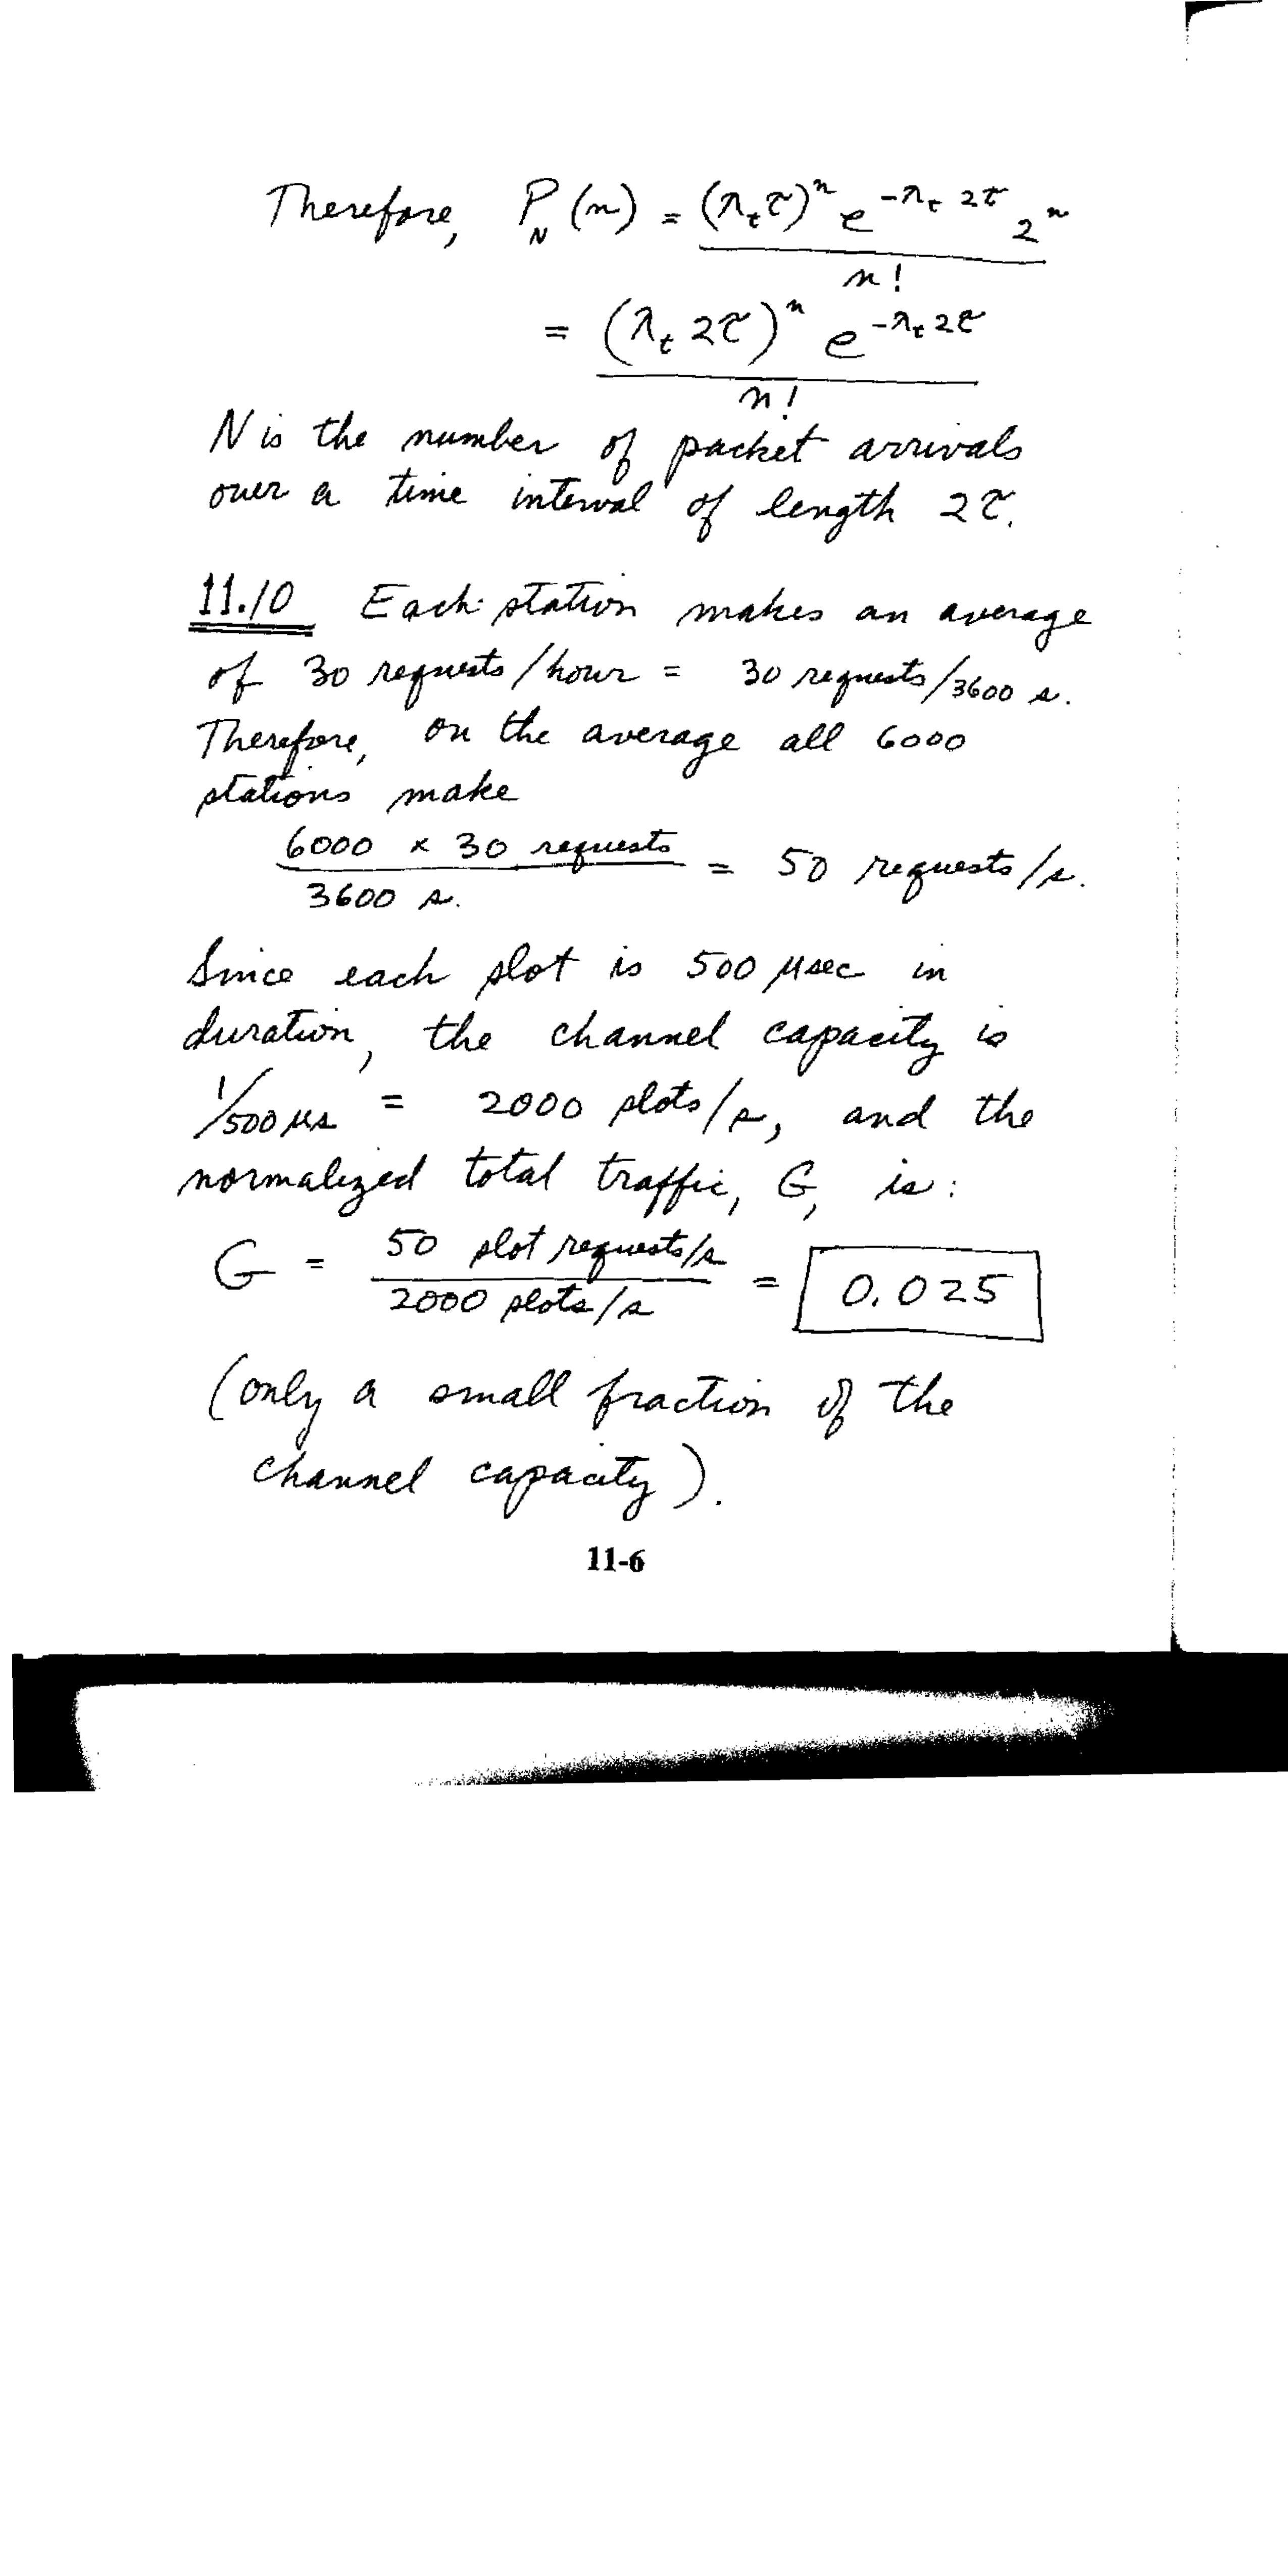 Therefore, P_N(n) = (λ_t τ)^n e^{-λ_t 2τ} 2^n
n!
= (λ_t 2τ)^n e^{-λ_t 2τ}
n!
N is the number of packet arrivals
over a time interval of length 2τ.
11.10 Each station makes an average
of 30 requests/hour = 30 requests/3600 s.
Therefore, on the average all 6000
stations make
6000 × 30 requests = 50 requests/s.
3600 s.
Since each slot is 500 μsec in
duration, the channel capacity is
1/500 μs = 2000 slots/s, and the
normalized total traffic, G, is:
G = 50 slot requests/s = 0.025
2000 slots/s
(only a small fraction of the
channel capacity).
11-6